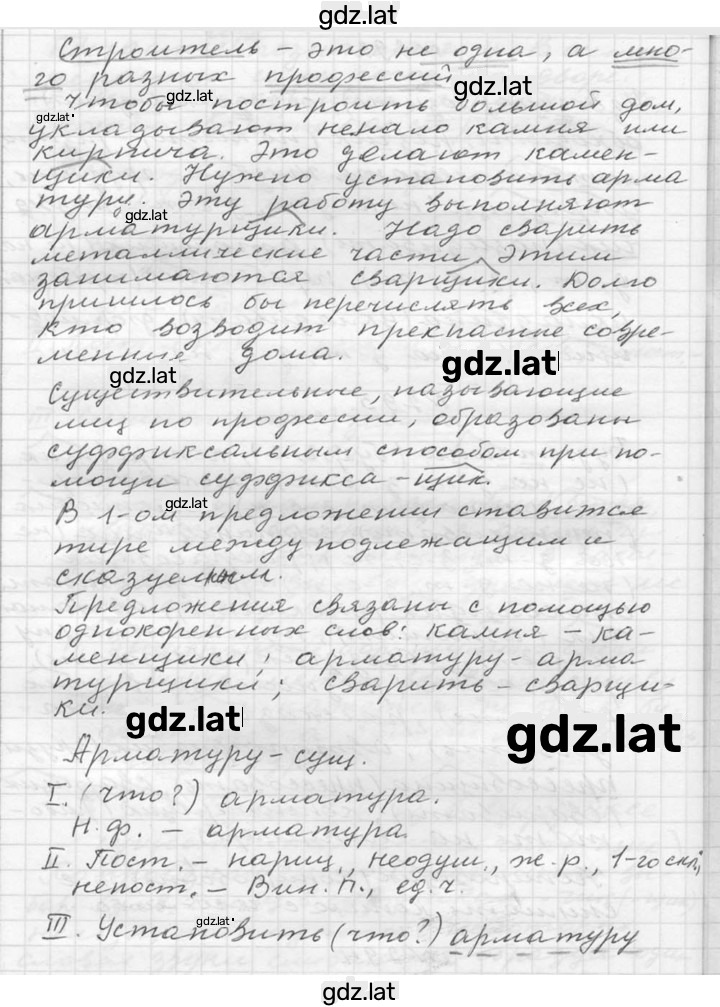 gdz.lat
Строитель – это не одна, а мно-
го разных профессий.
gdz.lat
Чтобы построить большой дом,
gdz.lat
укладывают немало камня или
кирпича. Это делают камен-
щики. Нужно установить арма
туру. Эту работу выполняют
gdz.lat
арматурщики. Надо сварить
металлические части. Этим
занимаются сварщики. Долго
пришлось бы перечислять всех,
кто возводит прекрасные совре-
менные дома.
gdz.lat
gdz.lat
Существительные, называющие
лиц по профессии, образованы
суффиксальным способом при по-
мощи суффикса -щик.
gdz.lat
В 1-ом предложении ставится
тире между подлежащим и
сказуемым.
Предложения связаны с помощью
однокоренных слов: камня – ка-
менщики; арматуру – арма
турщики; сварить – сварщи-
ки.
gdz.lat
gdz.lat
Арматуру – сущ.
I. (что?) арматура.
Н.ф. – арматура.
II. Пост. – нариц., неодуш., ж.р., 1-го скл.,
непост. – Вин. п., ед.ч.
gdz.lat
III. Установить (что?) арматуру
gdz.lat